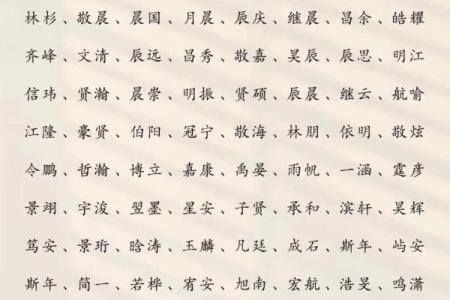 林杉、敬晨、晨国、月晨、辰庆、继晨、昌余、皓耀
齐峰、文清、辰远、昌秀、敬嘉、昊辰、辰思、明江
信玮、贤瀚、晨崇、明振、贤硕、辰晨、继云、航喻
江隆、豪贤、伯阳、冠宁、敬海、林朋、依明、敬炫
令鹏、哲瀚、博立、嘉康、禹晏、雨帆、一涵、霆彦
景翊、宇浚、翌墨、星安、子贤、承和、滨轩、昊辉
笃安、景珩、晗涛、玉麟、凡廷、成石、斯年、屿安
斯年、简一、若桦、宥安、旭南、宏航、浩旻、鸣潇